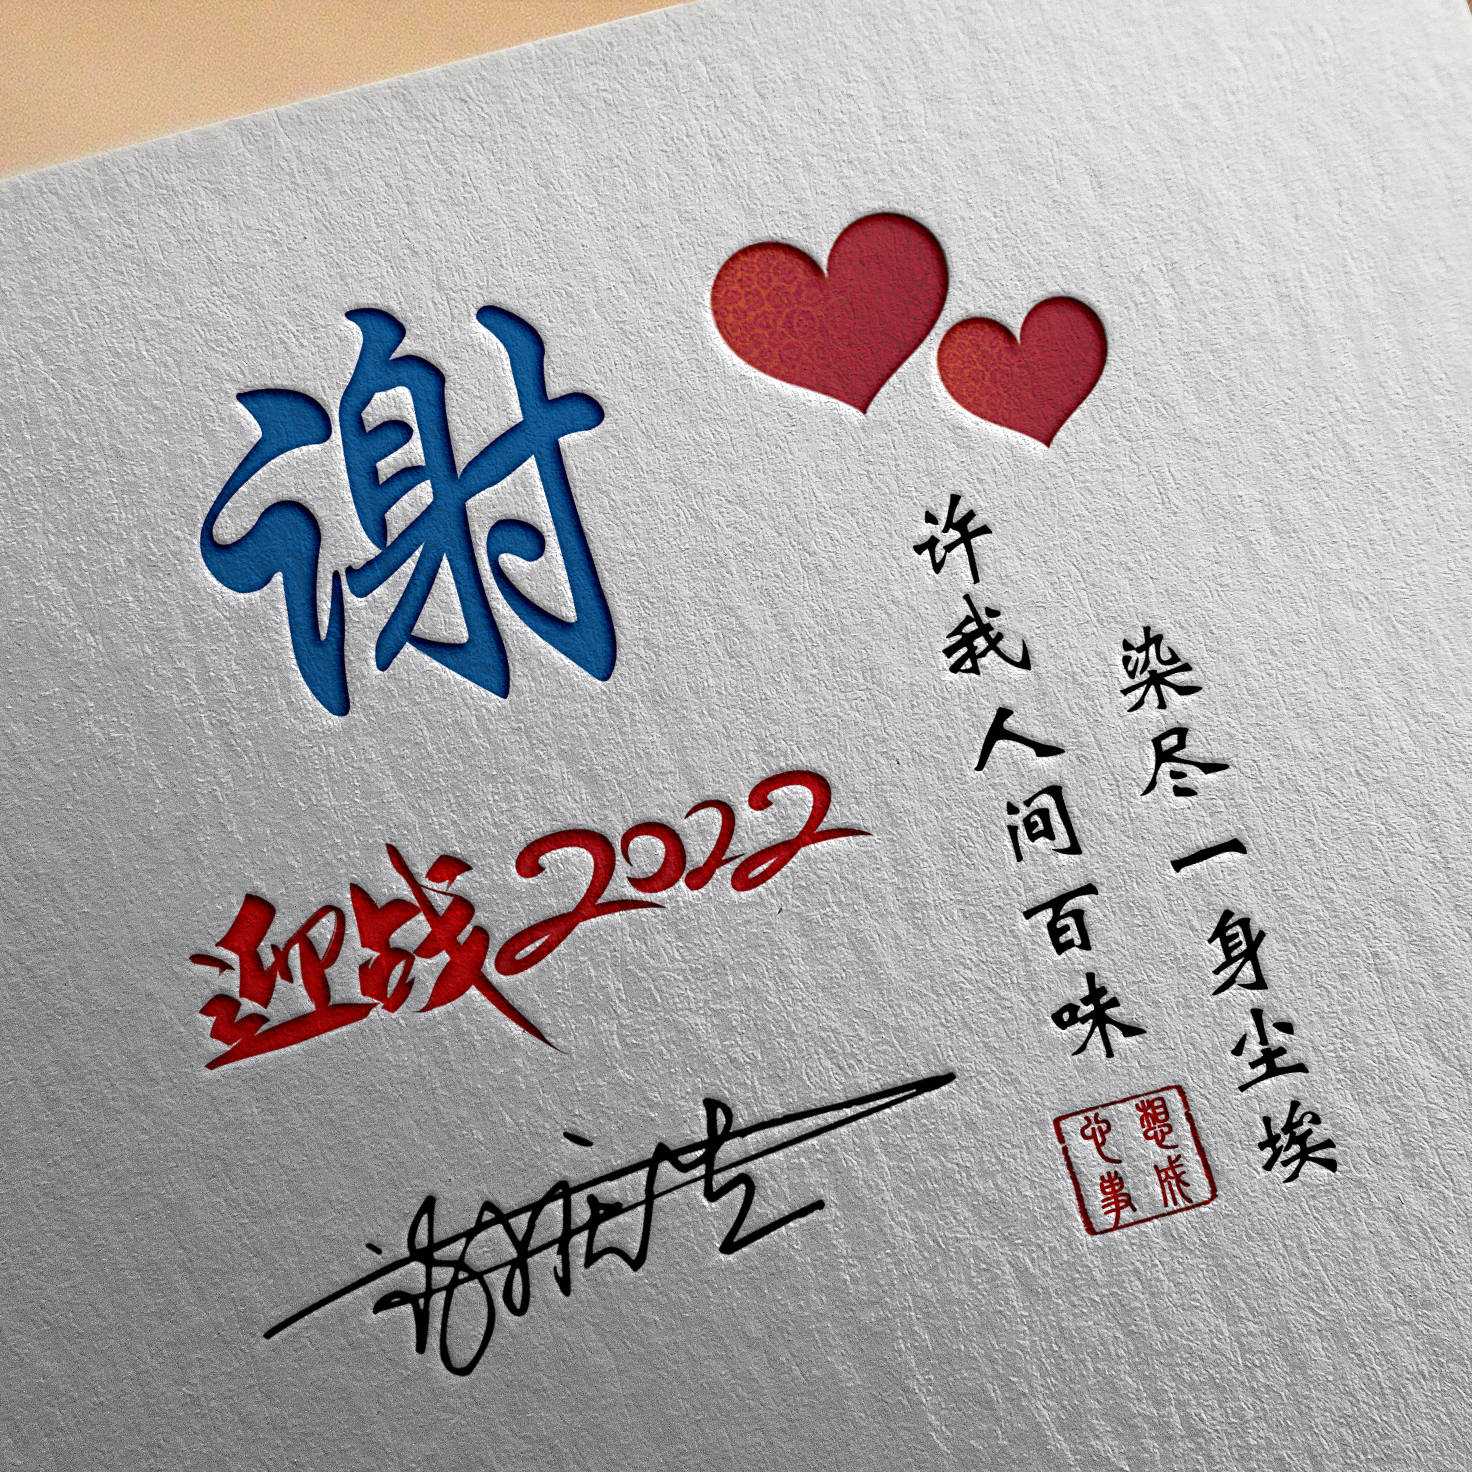 谢
迎战2022
许我人间百味
染尽一身尘埃
想成
心事